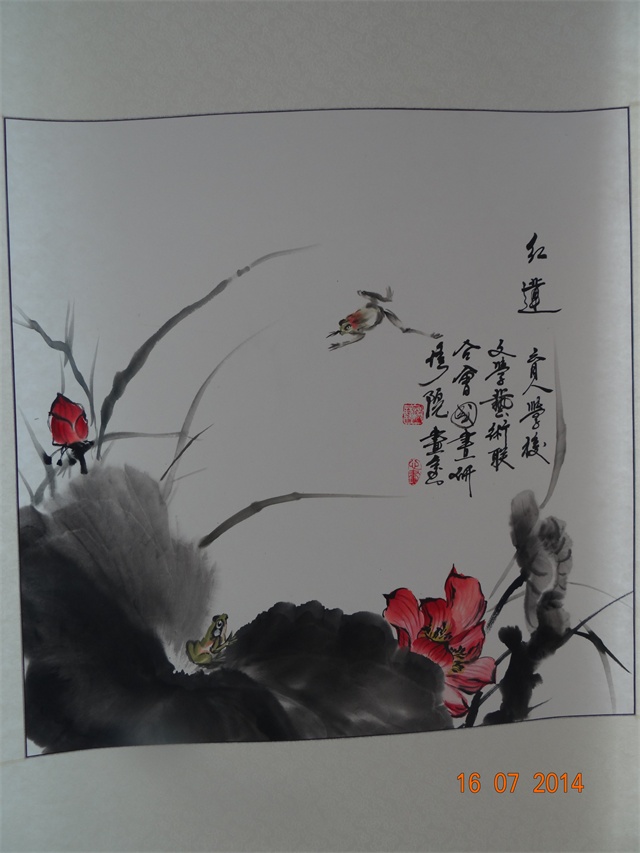 红蓮 育人學校
文學藝術联
合會國畫研
修院畫
16 07 2014